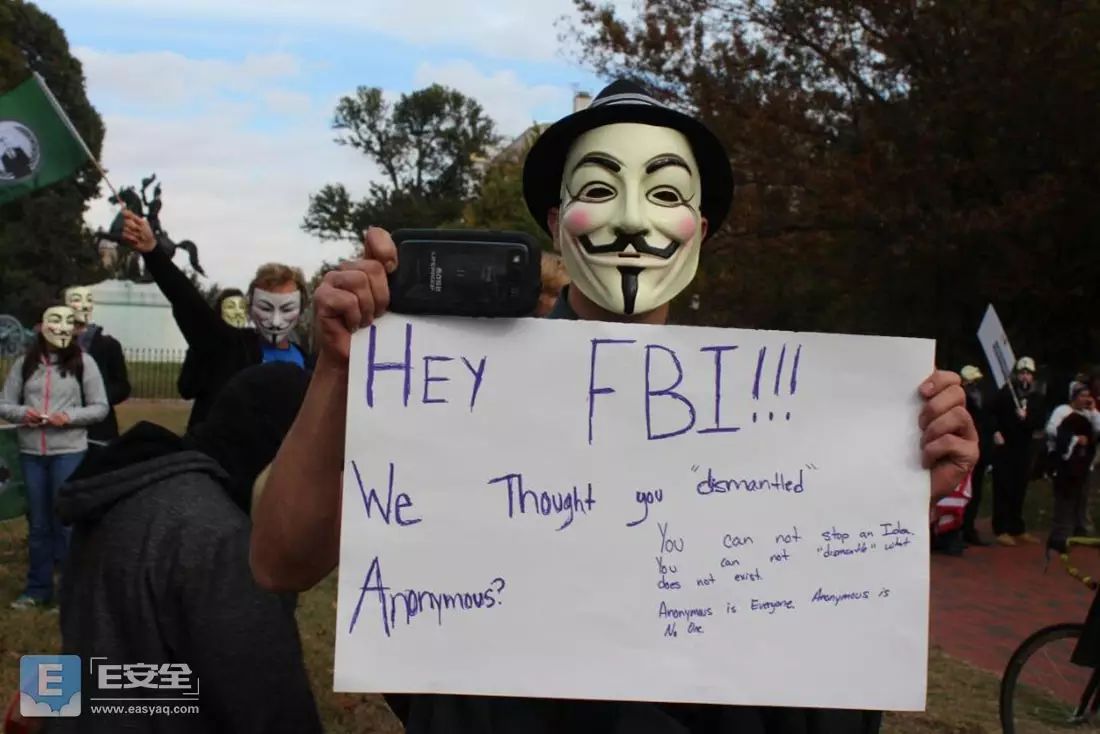 HEY FBI!!!
We Thought you "dismantled"
Anonymous?
You can not stop an Idea.
You can not "dismantle" what
does not exist.
Anonymous is Everyone. Anonymous is
No One
SAMSUNG
E E安全
www.easyaq.com